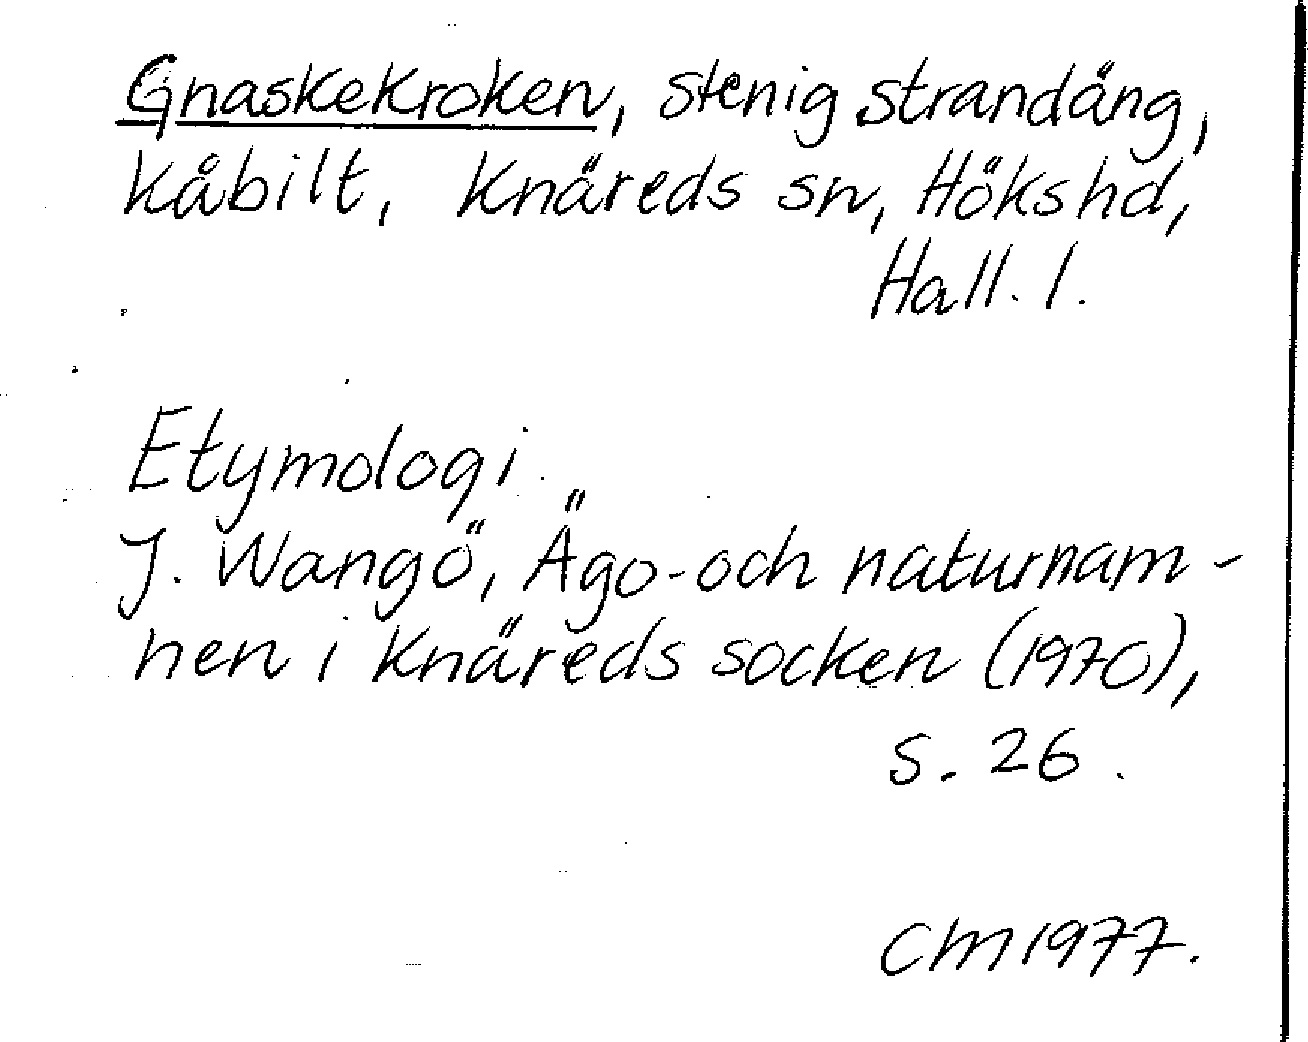 Gnaskekroken, stenig strandäng,
Kåbilt, Knäreds sn, Höks hd,
Hall. l.
Etymologi.
J. Wangö, Ägo- och naturnam-
nen i Knäreds socken (1970),
s. 26.
CM 1977.